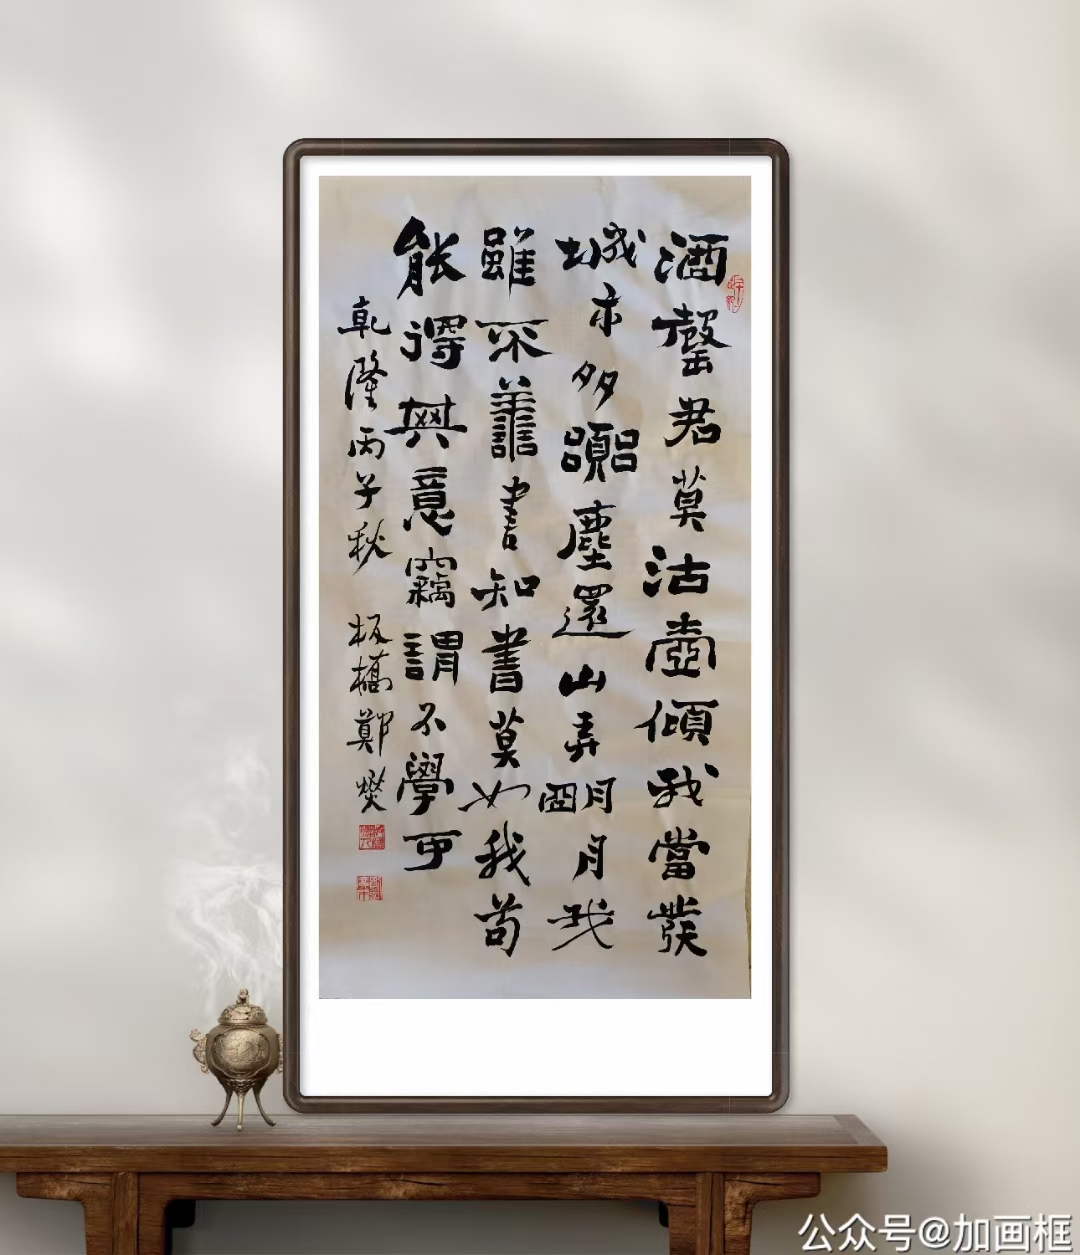 酒罄君莫沽壺傾我當發
城市多囂塵還山弄朙月我
雖不善書知書莫如我苟
能得其意竊謂不學可
乾隆丙子秋 板橋鄭燮
公众号@加画框